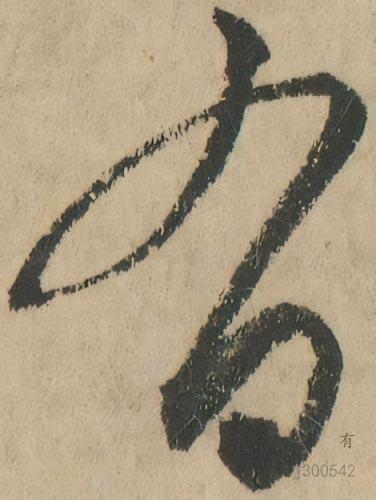 有
有
j300542